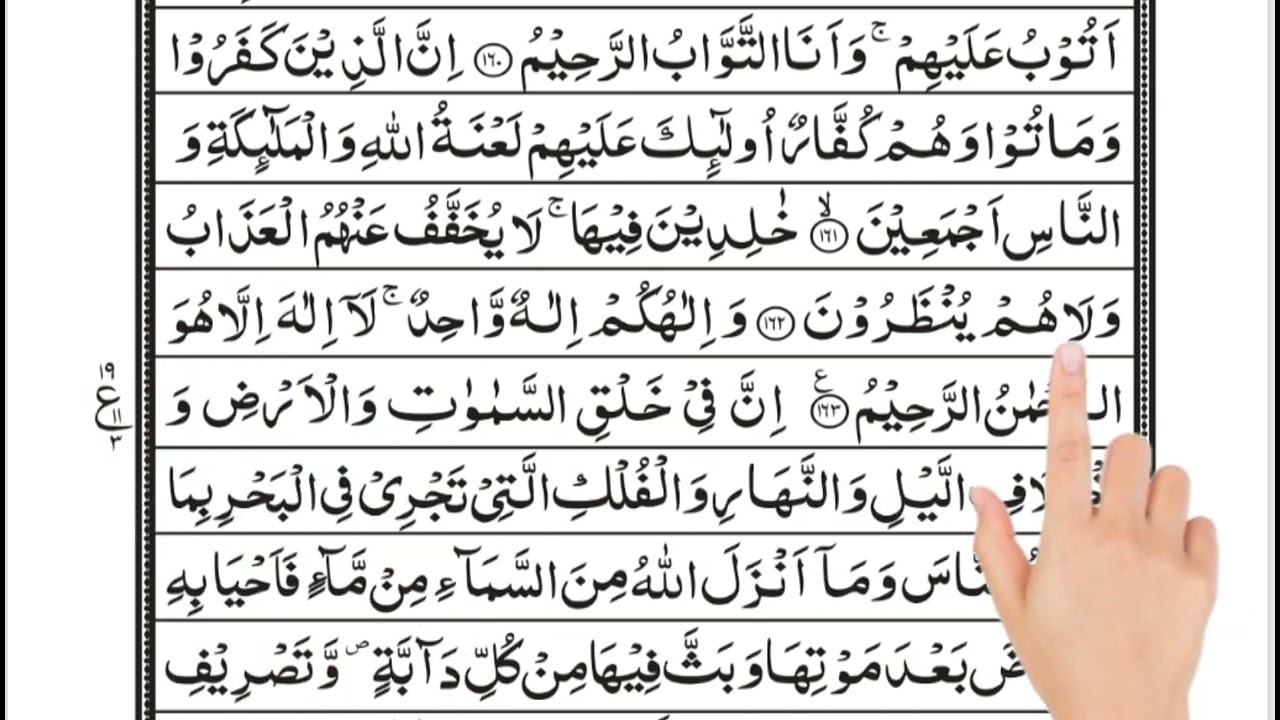 اَتُوْبُ عَلَيْهِمْ ۚ وَاَنَا التَّوَّابُ الرَّحِيْمُ ۝۱۶۰ اِنَّ الَّذِيْنَ كَفَرُوْا
وَمَاتُوْا وَهُمْ كُفَّارٌ اُولٰٓئِكَ عَلَيْهِمْ لَعْنَةُ اللّٰهِ وَالْمَلٰٓئِكَةِ وَ
النَّاسِ اَجْمَعِيْنَ ۝۱۶۱ۙ خٰلِدِيْنَ فِيْهَا ۚ لَا يُخَفَّفُ عَنْهُمُ الْعَذَابُ
وَلَا هُمْ يُنْظَرُوْنَ ۝۱۶۲ وَاِلٰهُكُمْ اِلٰهٌ وَّاحِدٌ ۚ لَآ اِلٰهَ اِلَّا هُوَ
الرَّحْمٰنُ الرَّحِيْمُ ۝۱۶۳ۧ اِنَّ فِيْ خَلْقِ السَّمٰوٰتِ وَالْاَرْضِ وَ
۱۹
ع
۱۱
۳
الَّيْلِ وَالنَّهَارِ وَالْفُلْكِ الَّتِيْ تَجْرِيْ فِي الْبَحْرِ بِمَا
وَمَآ اَنْزَلَ اللّٰهُ مِنَ السَّمَآءِ مِنْ مَّآءٍ فَاَحْيَا بِهِ
بَعْدَ مَوْتِهَا وَبَثَّ فِيْهَا مِنْ كُلِّ دَآبَّةٍ ۪ وَّتَصْرِيْفِ